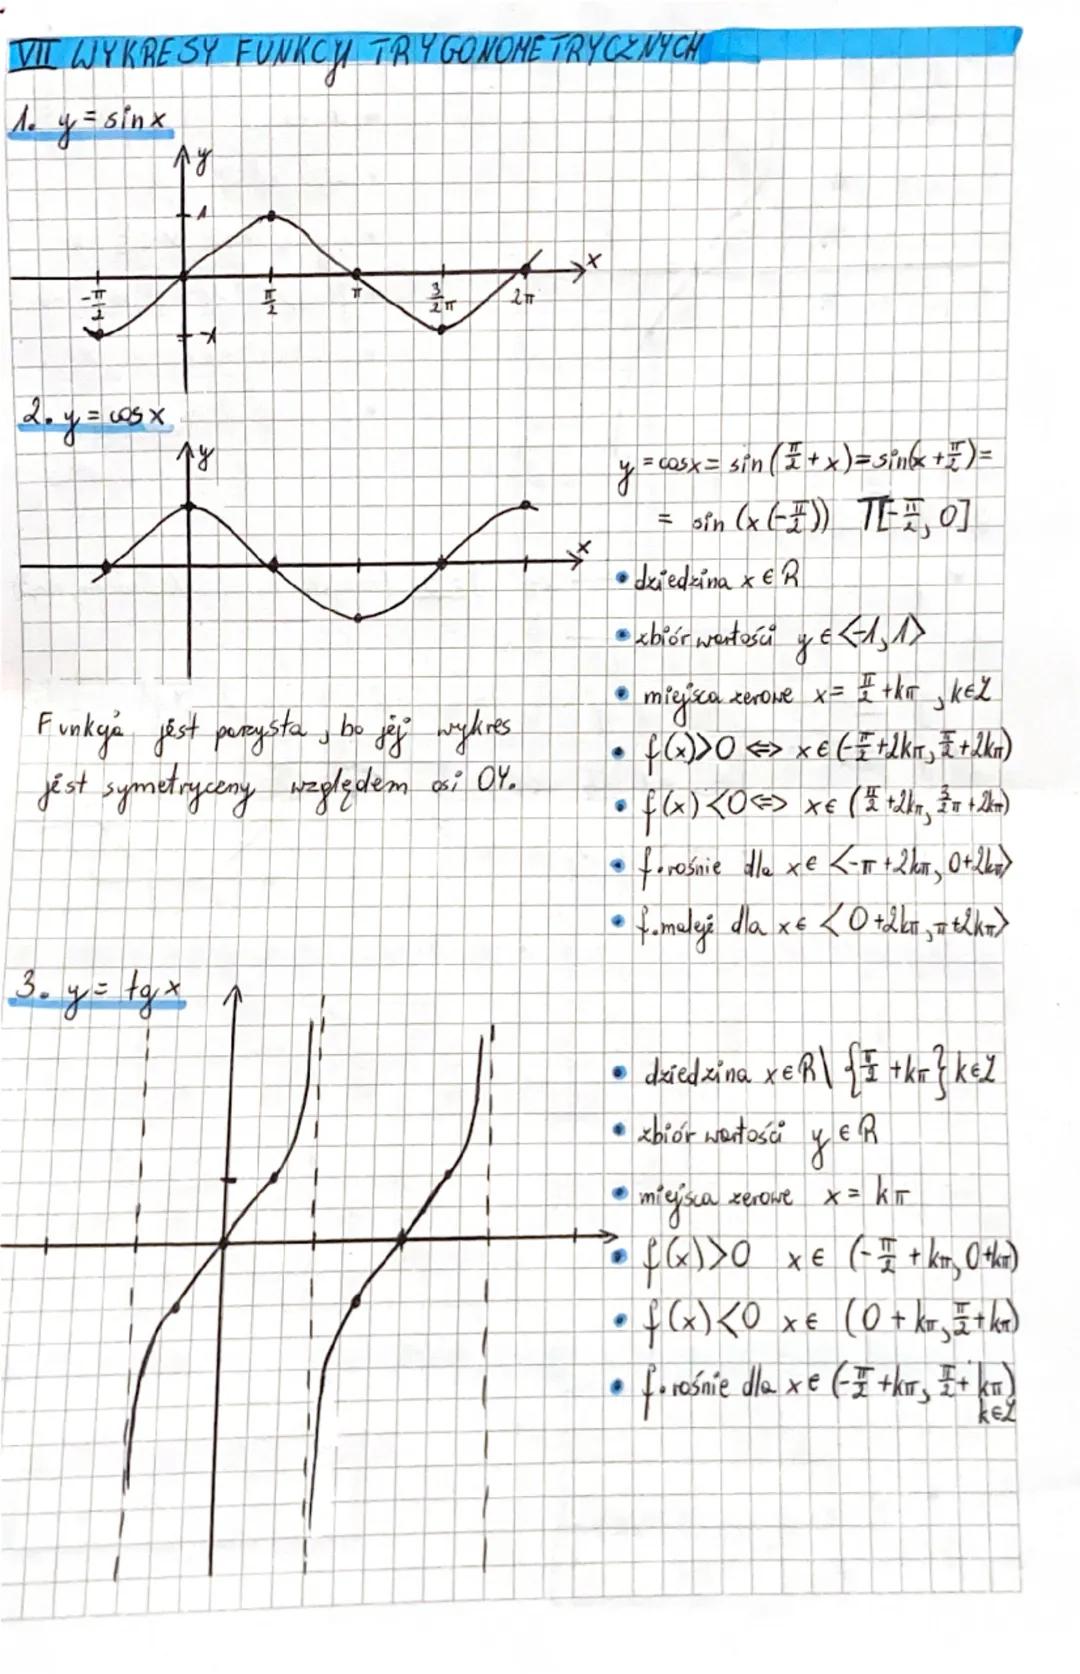 VII WYKRESY FUNKCJI TRYGONOMETRYCZNYCH
1. y = sin x
y
1
x
-π/2
π/2
π
3/2 π
2π
-1
2. y = cos x
y
x
y = cos x = sin (π/2 + x) = sin(x + π/2) =
= sin (x (-π/2)) T[-π/2, 0]
• dziedzina x ∈ R
• zbiór wartości y ∈ <-1, 1>
• miejsca zerowe x = π/2 + kπ, k∈Z
• f(x)>0 <=> x ∈ (-π/2 + 2kπ, π/2 + 2kπ)
• f(x)<0 <=> x ∈ (π/2 + 2kπ, 3/2 π + 2kπ)
• f. rośnie dla x ∈ <-π + 2kπ, 0 + 2kπ>
• f. maleje dla x ∈ <0 + 2kπ, π + 2kπ>
Funkcja jest parzysta, bo jej wykres
jest symetryczny względem osi OY.
3. y = tg x
• dziedzina x ∈ R \ {π/2 + kπ} k∈Z
• zbiór wartości y ∈ R
• miejsca zerowe x = kπ
• f(x)>0 x ∈ (-π/2 + kπ, 0 + kπ)
• f(x)<0 x ∈ (0 + kπ, π/2 + kπ)
• f. rośnie dla x ∈ (-π/2 + kπ, π/2 + kπ)
k∈Z